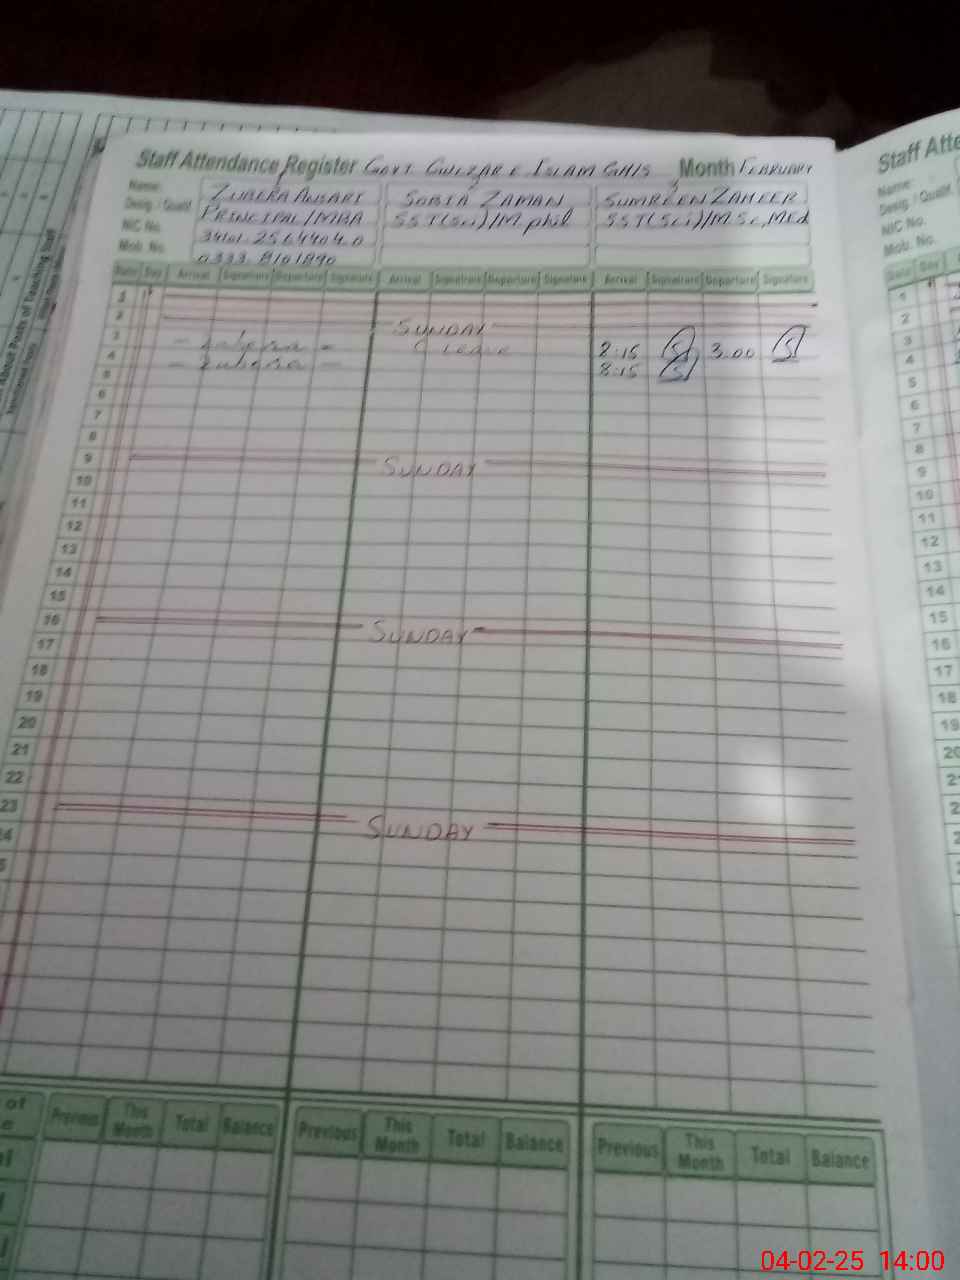 Staff Attendance Register GOVT. GULZAR E ISLAM GHS Month FEBRUARY
Name: ZUBERA ANSARI SOBIA ZAMAN SUMREEN ZAMEER
Desig. / Qualif. PRINCIPAL/MBA SST(Sci)/M.phil SST(Sci)/M.Sc, MEd
NIC No.
Mob. No.
Date Day Arrival Signature Departure Signature Arrival Signature Departure Signature Arrival Signature Departure Signature
1
2 SUNDAY
3 Leave 8.15 3.00
4 8.15
5
6
7
8
9 SUNDAY
10
11
12
13
14
15
16 SUNDAY
17
18
19
20
21
22
23 SUNDAY
Previous This Month Total Balance Previous This Month Total Balance Previous This Month Total Balance
Staff Atte
Name:
Desig. / Qualif
NIC No.
Mob. No.
Date Day
1
2
3
4
5
6
7
8
9
10
11
12
13
14
15
16
17
18
19
04-02-25 14:00